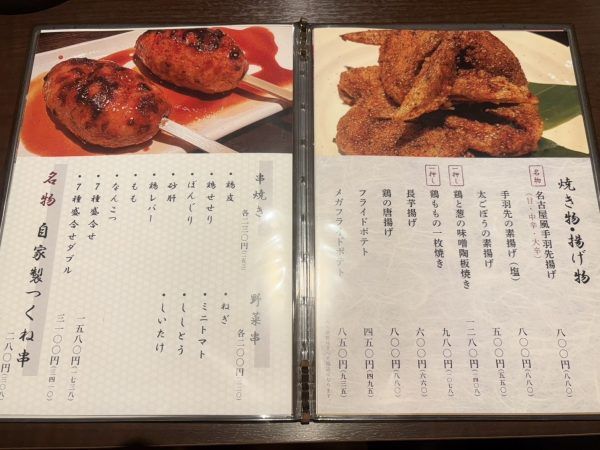 焼き物・揚げ物
名物 名古屋風手羽先揚げ 八〇〇円(八八〇)
(甘・中辛・大辛)
手羽先の素揚げ(塩) 八〇〇円(八八〇)
太ごぼうの素揚げ 五〇〇円(五五〇)
一押し 鶏と葱の味噌陶板焼き 一二八〇円(一四〇八)
一押し 鶏ももの一枚焼き 九八〇円(一〇七八)
長芋揚げ 六〇〇円(六六〇)
鶏の唐揚げ 八〇〇円(八八〇)
フライドポテト 四五〇円(四九五)
メガフライドポテト 八五〇円(九三五)
串焼き 各二三〇円(二五三)
・鶏皮
・鶏せせり
・ぼんじり
・砂肝
・鶏レバー
・もも
・なんこつ
・7種盛合せ 一五八〇円(一七三八)
・7種盛合せダブル 三一〇〇円(三四一〇)
野菜串 各二〇〇円(二二〇)
・ねぎ
・ミニトマト
・ししとう
・しいたけ
名物 自家製つくね串 二八〇円(三〇八)